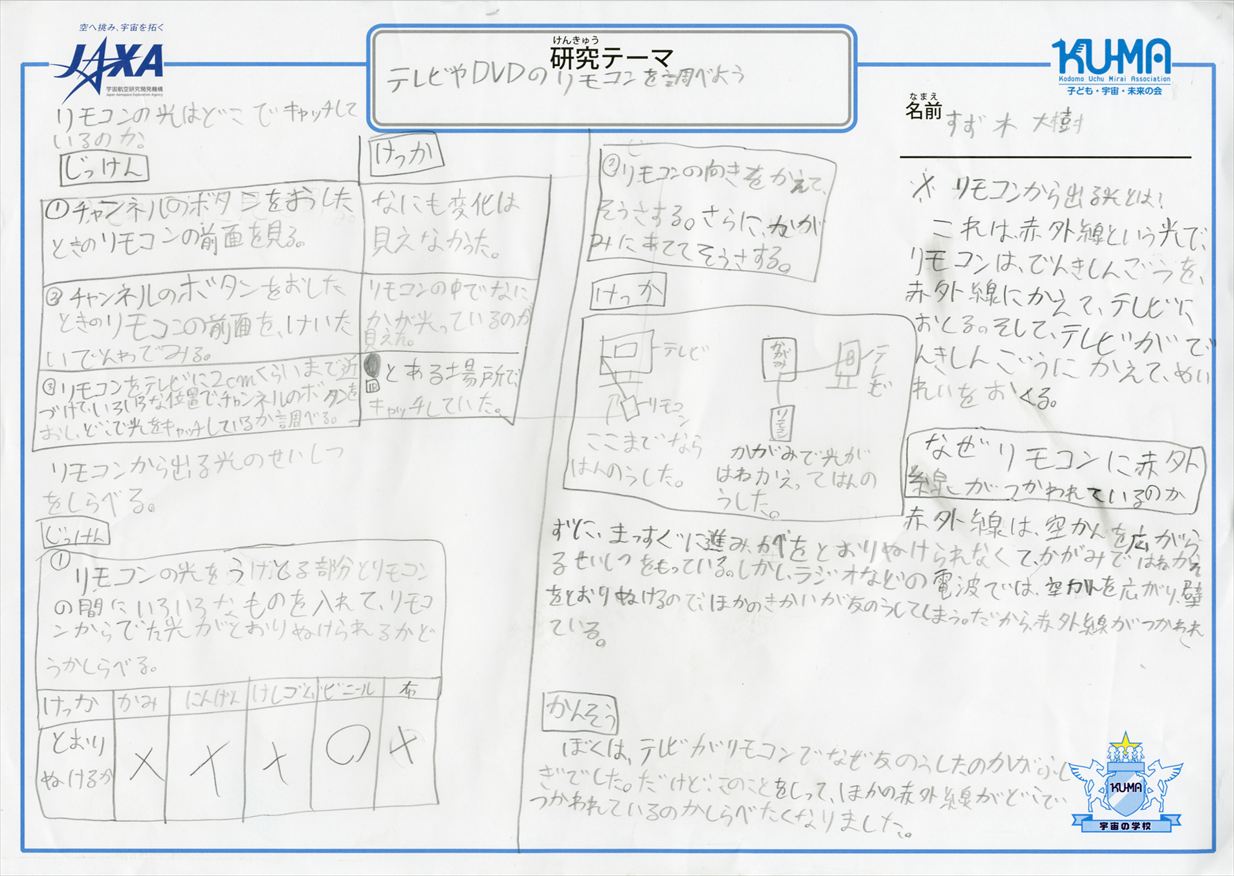 空へ挑み、宇宙を拓く
JAXA
宇宙航空研究開発機構
Japan Aerospace Exploration Agency
けんきゅう
研究テーマ
テレビやDVDのリモコンを調べよう
KUMA
Kodomo Uchu Mirai Association
子ども・宇宙・未来の会
なまえ
名前
すず木 大樹
リモコンの光はどこでキャッチして
いるのか。
じっけん
けっか
①チャンネルのボタンをおした
ときのリモコンの前面を見る。
なにも変化は
見えなかった。
②チャンネルのボタンをおした
ときのリモコンの前面を、けいた
いでんわでみる。
リモコンの中でなに
かが光っているのが
見えた。
③リモコンをテレビに2cmくらいまで近
づけて、いろいろな位置でチャンネルのボタンを
おし、どこで光をキャッチしているか調べる。
とある場所で
キャッチしていた。
リモコンから出る光のせいしつ
をしらべる。
じっけん
①
リモコンの光をうけとる部分とリモコン
の間にいろいろなものを入れて、リモコ
ンからでた光がとおりぬけられるかど
うかしらべる。
けっか かみ にんげん けしゴム ビニール 布
とおり
ぬけるか × × × ○ ×
②リモコンの向きをかえて、
そうさする。さらに、かが
みにあててそうさする。
けっか
テレビ
リモコン
ここまでなら
はんのうした。
かがみ
テレビ
リモコン
かがみで光が
はねかえってはんの
うした。
※ リモコンから出る光とは?
これは、赤外線という光で、
リモコンは、でんきしんごうを、
赤外線にかえて、テレビに
おくる。そして、テレビがで
んきしんごうにかえて、めい
れいをおくる。
なぜリモコンに赤外
線がつかわれているのか
赤外線は、空かんを広がら
ずに、まっすぐに進み、かべをとおりぬけられなくて、かがみではねかえ
るせいしつをもっている。しかし、ラジオなどの電波では、空かんを広がり、壁
をとおりぬけるので、ほかのきかいが反のうしてしまう。だから、赤外線がつかわれ
ている。
かんそう
ぼくは、テレビがリモコンでなぜ反のうしたのかがふし
ぎでした。だけどこのことをしって、ほかの赤外線がどこで
つかわれているのかしらべたくなりました。
KUMA
宇宙の学校